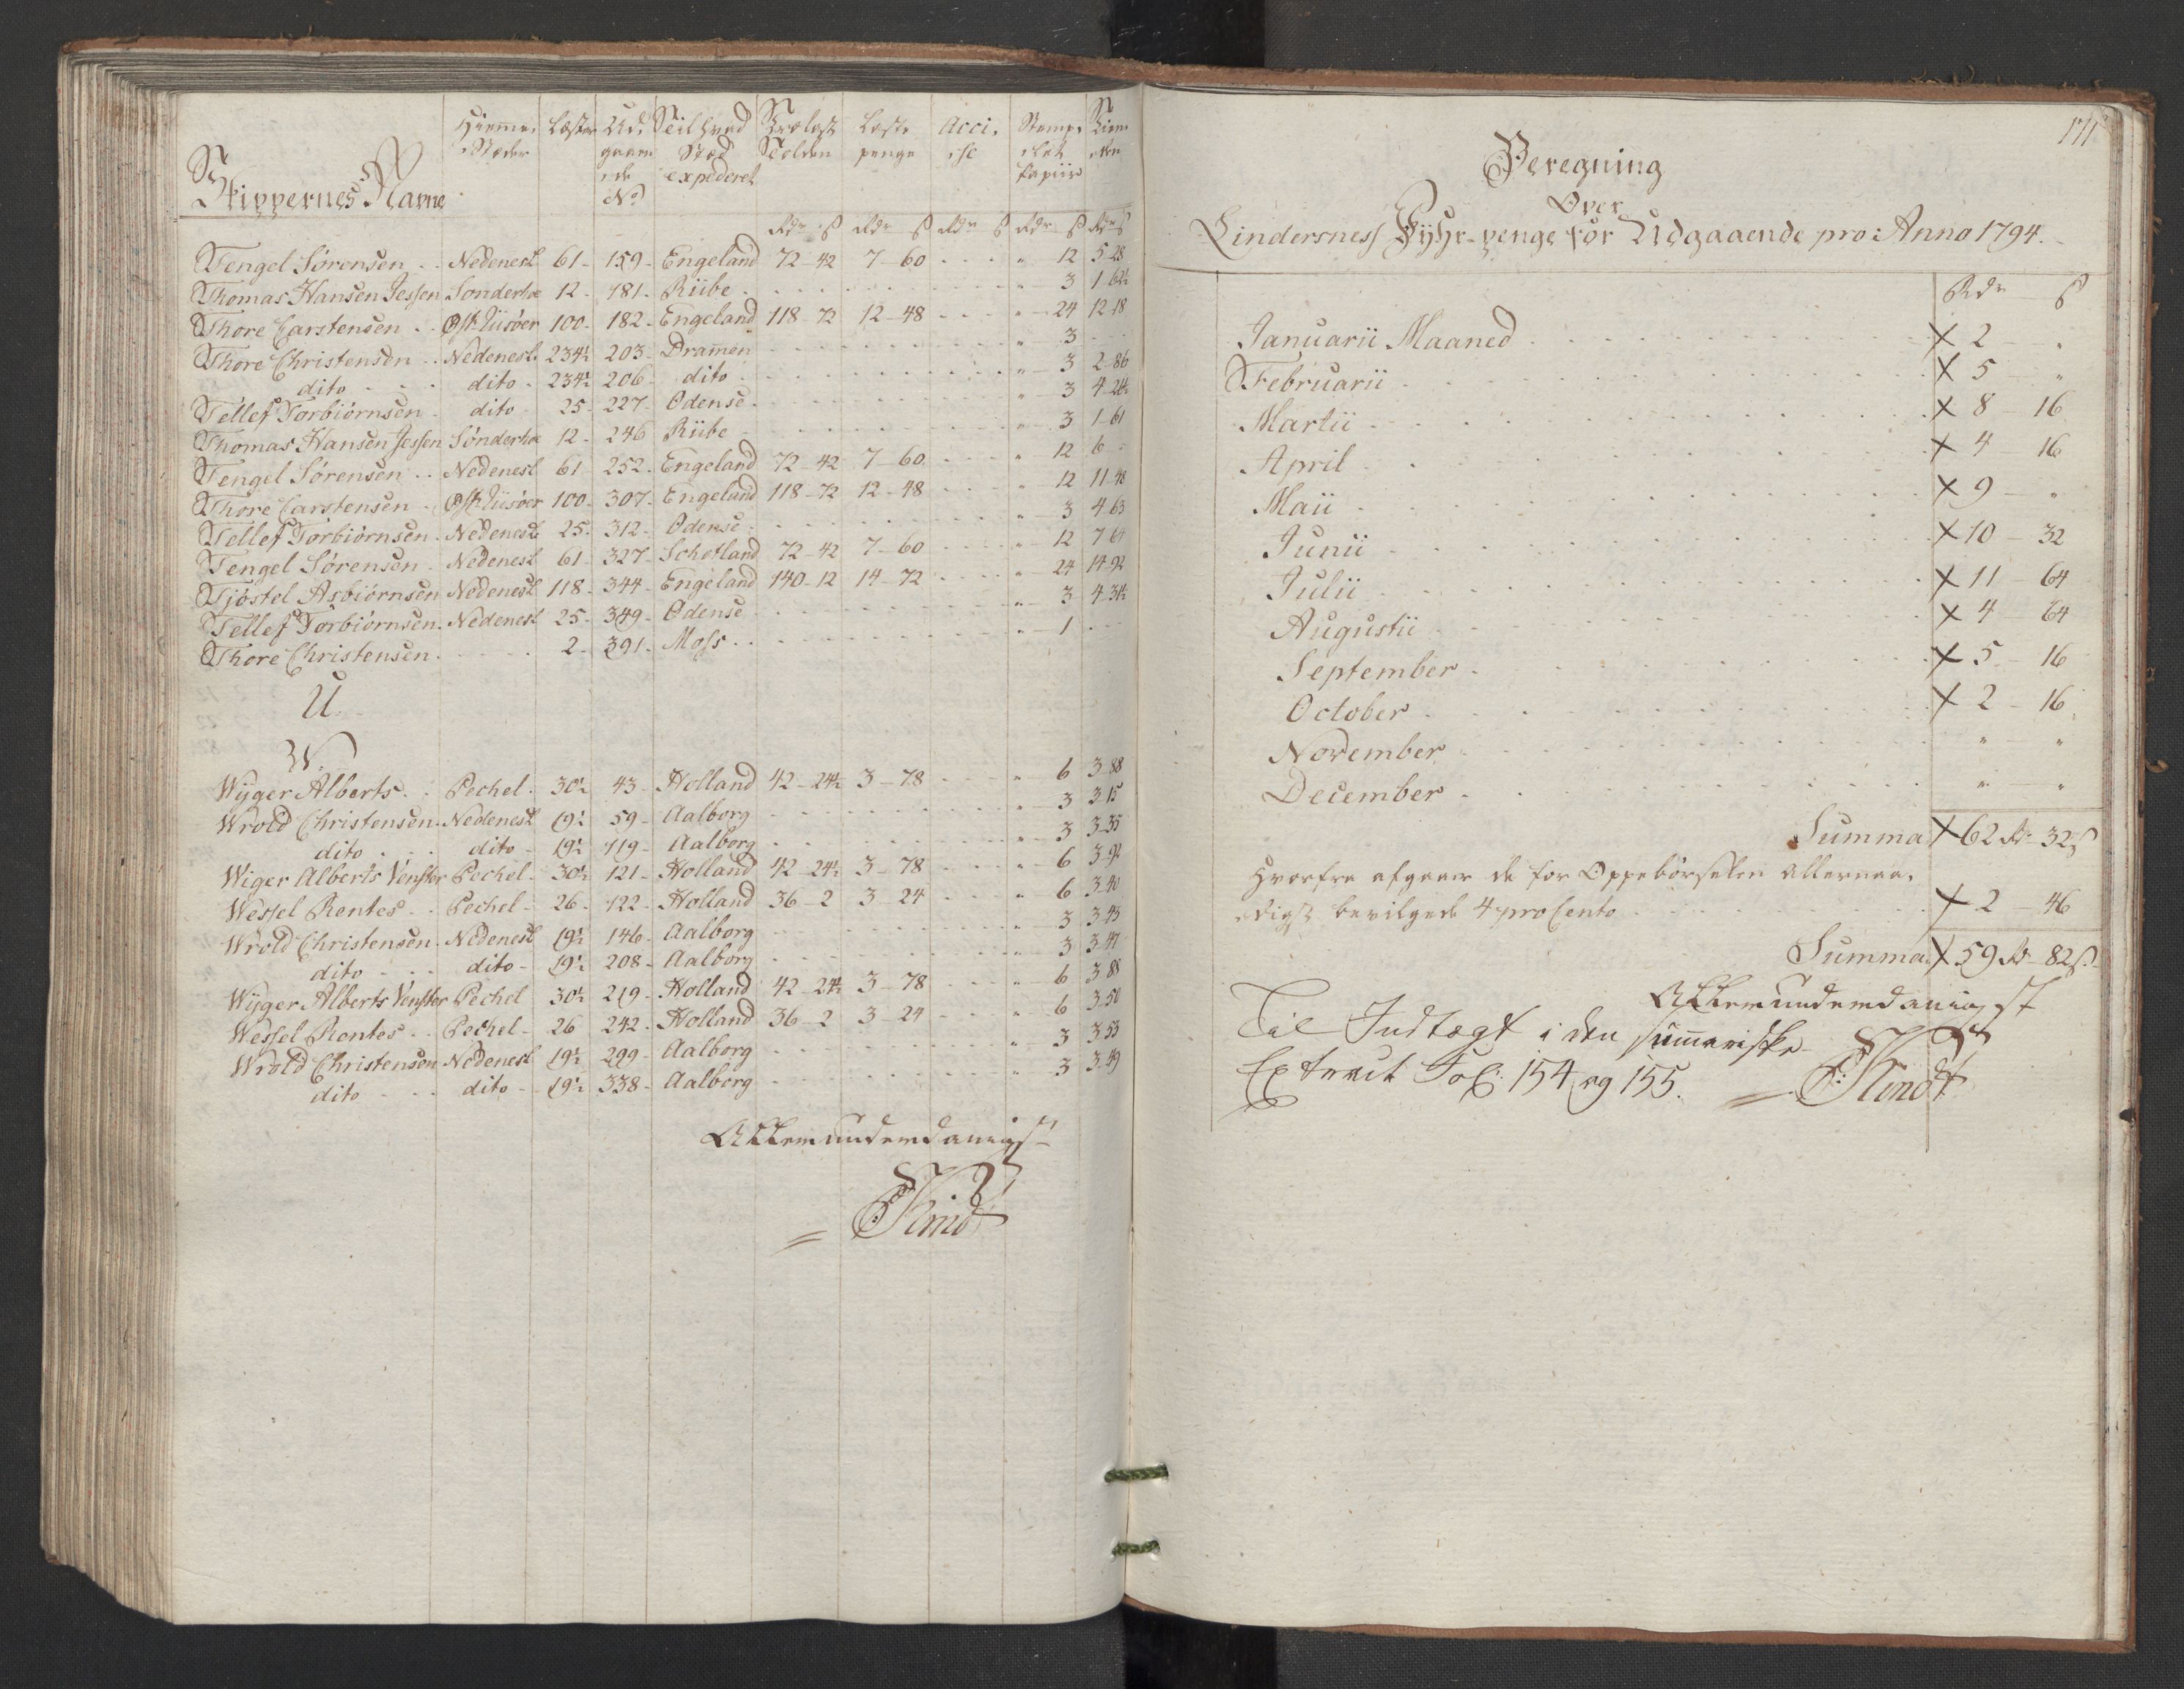 Skippernes Navne
Hiemme Stæder | Læster | Udgaaende No | Til hvad Stæd expederet | Trælast Tolden | Læste penge | Accise | Stemplet Papiir
Rdr ß Rdr ß Rdr ß Rdr ß Rdr ß
Tengel Sørensen . . Nedenest 61 - 159 - Engeland 72 - 42 7 - 60 . . . . " 12 5-28
Thomas Hansen Jessen Sønderhoe 12 - 181 - Riibe . . . . " 3 1-62½
Thore Carstensen . . Øst Riisøer 100 - 182 - Engeland 118 - 72 12 - 48 . . . . " 24 12-18
Thore Christensen . . Nedenest 234½ 203 - Dramen . . . . " 3 . .
dito . . . dito - 234½ 206 - dito . . . . " 3 2-86
Tellef Torbiørnsen - dito - 25 - 227 - Odense . . . . " 3 4-24½
Thomas Hansen Jessen Sønderhoe 12 - 246 Riibe . . . . " 3 1-61
Tengel Sørensen . . Nedenest 61 - 252 - Engeland 72 - 42 7 - 60 . . . . " 12 6 -
Thore Carstensen . Øst Riisøer 100 - 307 - Engeland 118 - 72 12 - 48 . . . . " 12 11-48
Tellef Torbiørnsen . Nedenest 25 - 312 - Odense . . . . " 3 4-63
Tengel Sørensen . Nedenest 61 - 327 - Schotland 72 - 42 7 - 60 . . . . " 12 7-67
Tjøstel Asbiørnsen Nedenest 118 - 344 - Engeland 140 - 12 14 - 72 . . . . " 24 14-92
Tellef Torbiørnsen . Nedenest 25 - 349 - Odense . . . . " 3 4-31½
Thore Christensen . . . . 2 - 391 - Moss . . . . " 1 . .
U.
W.
Wijger Alberts . . Pechel - 30½ 43 - Holland 42 - 24½ 3 - 78 . . . . " 6 3-88
Wrold Christensen . Nedenest 19½ 59 - Aalborg . . . . " 3 3-15
dito . . . dito - 19½ 119 - Aalborg . . . . " 3 3-35
Wiger Alberts Venster Pechel - 30½ 121 - Holland 42 - 24½ 3 - 78 . . . . " 6 3-92
Wessel Rentes . . Pechel - 26 - 122 - Holland 36 - 2 3 - 24 . . . . " 6 3-40
Wrold Christensen . Nedenest 19½ 146 - Aalborg . . . . " 3 3-45
dito . . . dito - 19½ 208 - Aalborg . . . . " 3 3-47
Wijger Alberts Venster Pechel 30½ 219 - Holland 42 - 24½ 3 - 78 . . . . " 6 3-88
Wessel Rentes . . Pechel - 26 242 - Holland 36 - 2 3 - 24 . . . . " 6 3-50
Wrold Christensen Nedenest 19½ 299 - Aalborg . . . . " 3 3-53
dito . . . dito - 19½ 338 - Aalborg . . . . " 3 3-49
Allerunderdanigst
Kindt
171
Beregning
Over
Lindersness Fyhr-penge for Udgaaende pro: Anno 1794.
Rdr ß
Januarii Maaned . . . . 2 - "
Februarii . . . . 5 - "
Martii . . . . 8 - 16
April . . . . 4 - 16
Maii . . . . 9 - "
Junii . . . . 10 - 32
Julii . . . . 11 - 64
Augustii . . . . 4 - 64
September . . . . 5 - 16
October . . . . 2 - 16
November . . . . " "
December . . . . " "
Summa 62 Rd 32 ß
Hvorfra afgaaer de for Oppebørselen allernaa-
digst bevilgede 4 pro Cento . . . . 2 - 46
Summa 59 Rd 82 ß
Allerunderdanigst
Til Indtægt i den summariske
Extract Fol: 154 og 155.
Kindt